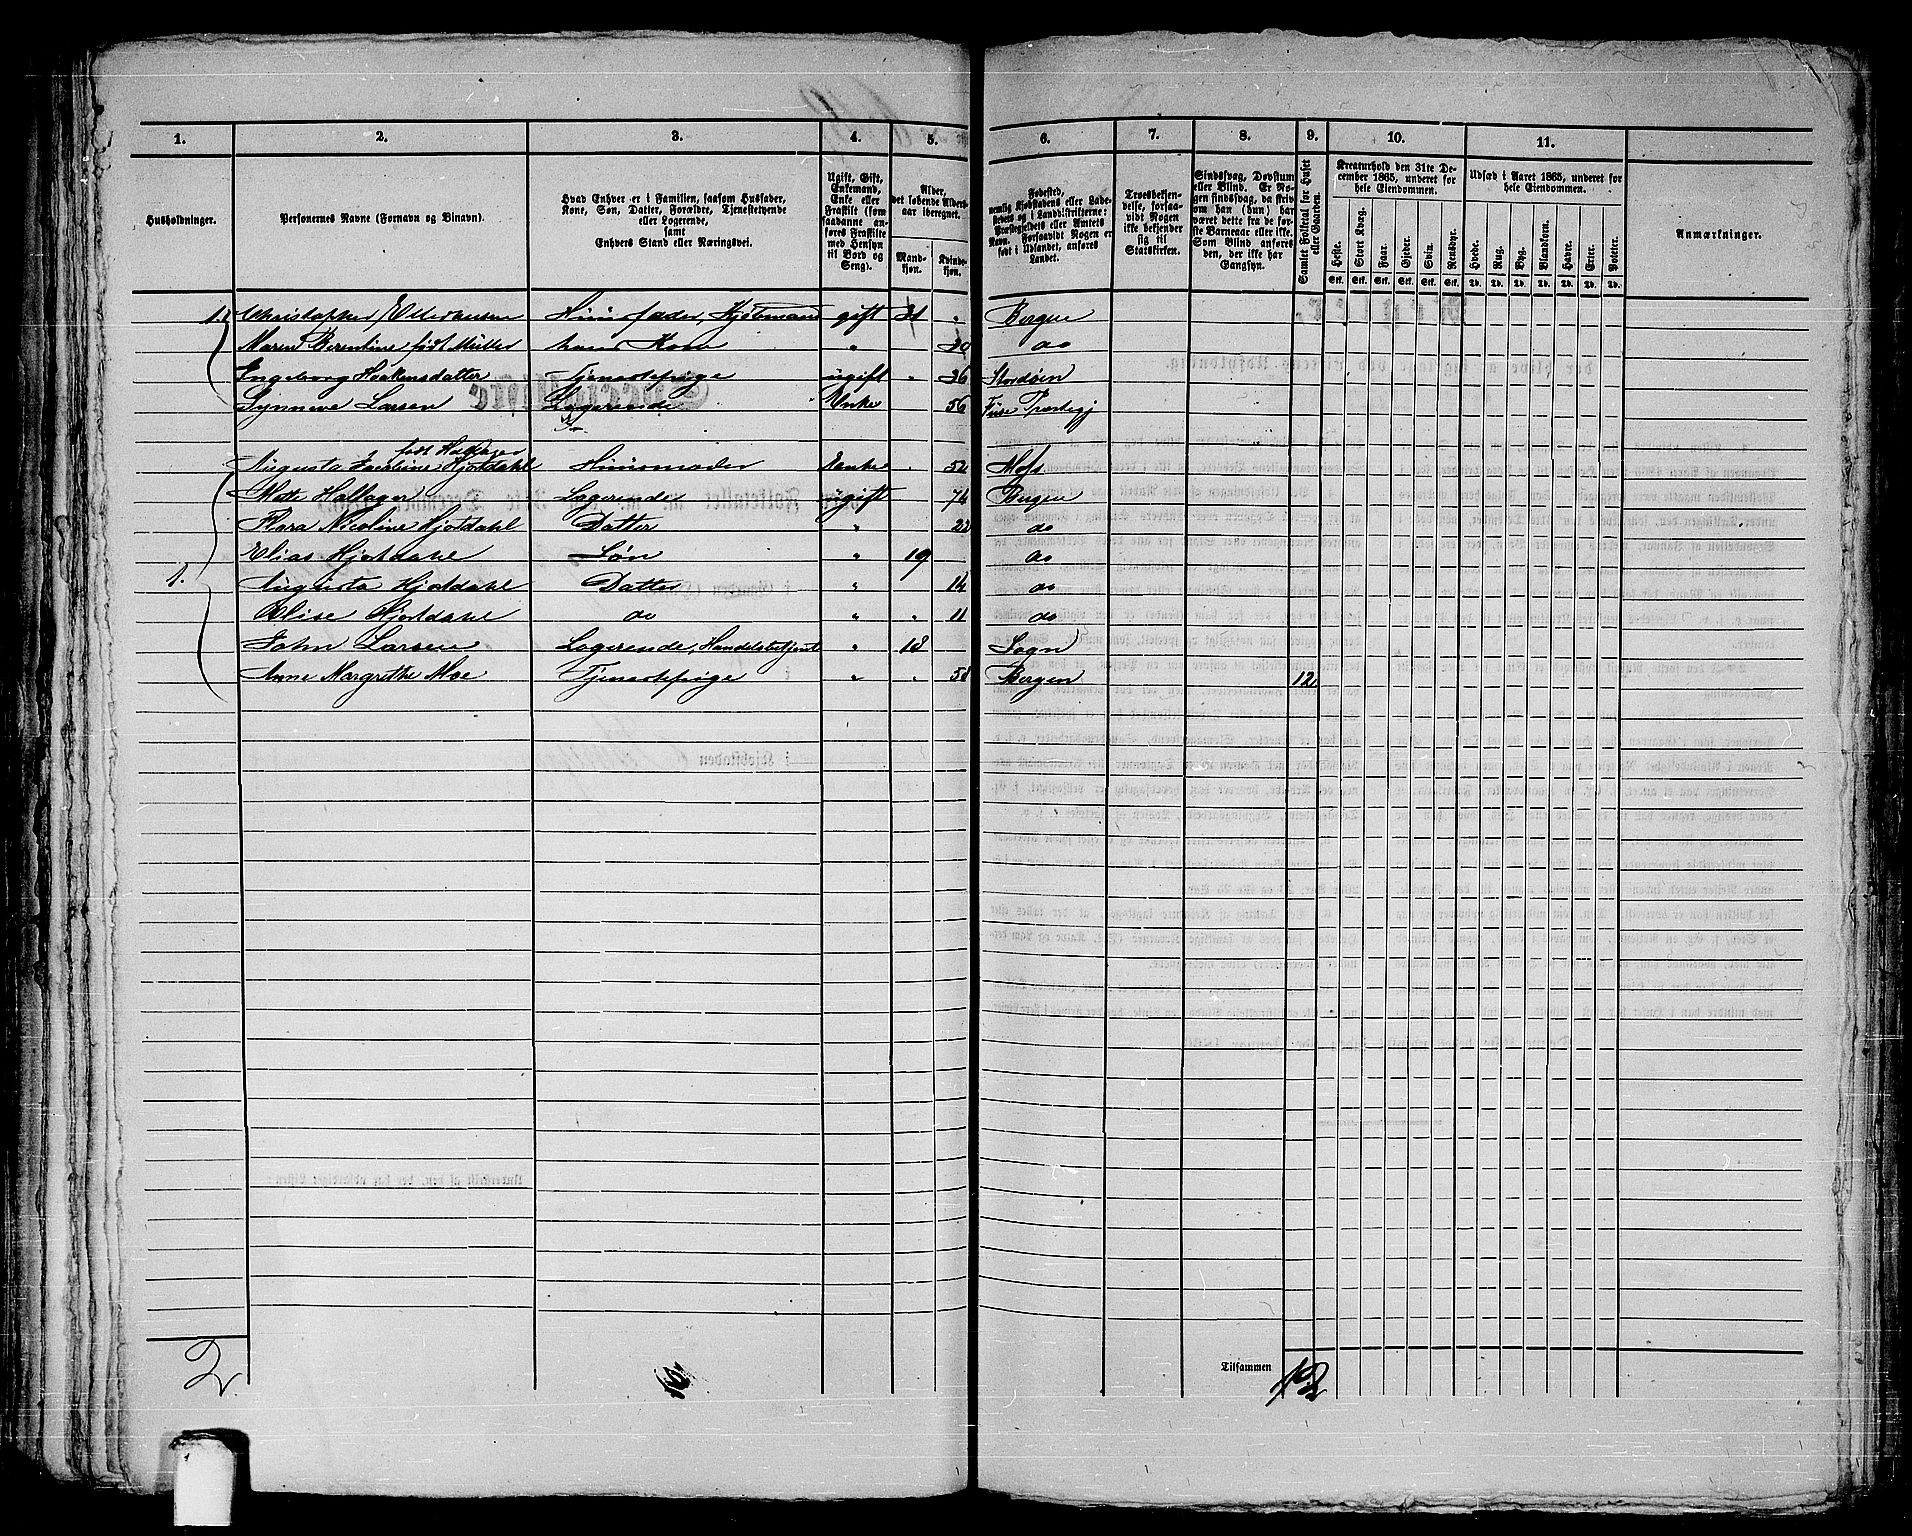 1. 2. 3. 4. 5. 6. 7. 8. 9. 10. 11.
Husholdninger.
Personernes Navne (Fornavn og Binavn).
Hvad Enhver er i Familien, saasom Husfader,
Kone, Søn, Datter, Forældre, Tjenestetyende
eller Logerende,
samt
Enhvers Stand eller Næringsvei.
Ugift, Gift,
Enkemand,
Enke eller
Fraskilt (som
saadanne an-
føres Fraskilte
med Hensyn
til Bord og
Seng).
Alder,
det løbende Alders-
aar iberegnet.
Mand-
kjøn.
Kvinde-
kjøn.
Fødested,
nemlig Kjøbstadens eller Lade-
stedets og i Landdistrikterne:
Præstegjeldets eller Amtets
Navn. Forsaavidt Nogen er
født i Udlandet, anføres
Landet.
Troesbekjen-
delse, forsaa-
vidt Nogen
ikke bekjender
sig til
Statskirken.
Sindssvag, Døvstum
eller Blind. Er No-
gen sindssvag, da skriv
om han (hun) har
været dette fra de før-
ste Barneaar eller ikke.
Som Blind anføres
den, der ikke har
Gangsyn.
Samlet Folketal for Huset
eller Gaarden.
Kreaturhold den 31te De-
cember 1865, underet for
hele Eiendommen.
Heste. Stort Qvæg. Faar. Gjeder. Svin. Rensdyr.
Stk. Stk. Stk. Stk. Stk. Stk.
Udsæd i Aaret 1865, underet for
hele Eiendommen.
Hvede. Rug. Byg. Blandkorn. Havre. Erter. Poteter.
Td. Td. Td. Td. Td. Td. Td.
Anmærkninger.
1. Christopher Ellerhusen Huusfader, Kjøbmand gift 31 " Bergen
Maren Berentine født Müller hans Kone " 30 do
Engeborg Haakensdatter Tjenestepige ugift " 36 Stordøen
Synneve Larsen Logerende Enke 56 Fuse Præstegj
født Hallager
Augusta Hjotdahl Huusmoder Enke " 52 Moss
Mette Hallager Logerende ugift 74 Bergen
Nicoline Hjotdahl Datter " 22 do
Elias Hjotdahl Søn " 19 do
1. Augusta Hjotdahl Datter " 14 do
Elise Hjotdahl do " " 11 do
John Larsen Logerende, Handelsbetjent " 18 Sogn
Anne Margrethe Moe Tjenestepige " " 58 Bergen 12
2
Tilsammen 12